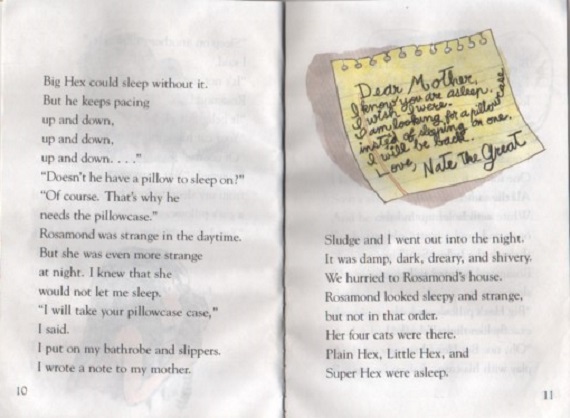 Big Hex could sleep without it.
But he keeps pacing
up and down,
up and down,
up and down. . . ."
"Doesn't he have a pillow to sleep on?"
"Of course. That's why he
needs the pillowcase."
Rosamond was strange in the daytime.
But she was even more strange
at night. I knew that she
would not let me sleep.
"I will take your pillowcase case,"
I said.
I put on my bathrobe and slippers.
I wrote a note to my mother.
10
Dear Mother,
I know you are asleep.
I wish I were.
I am looking for a pillowcase
instead of sleeping on one.
I will be back.
Love, Nate the Great
Sludge and I went out into the night.
It was damp, dark, dreary, and shivery.
We hurried to Rosamond's house.
Rosamond looked sleepy and strange,
but not in that order.
Her four cats were there.
Plain Hex, Little Hex, and
Super Hex were asleep.
11